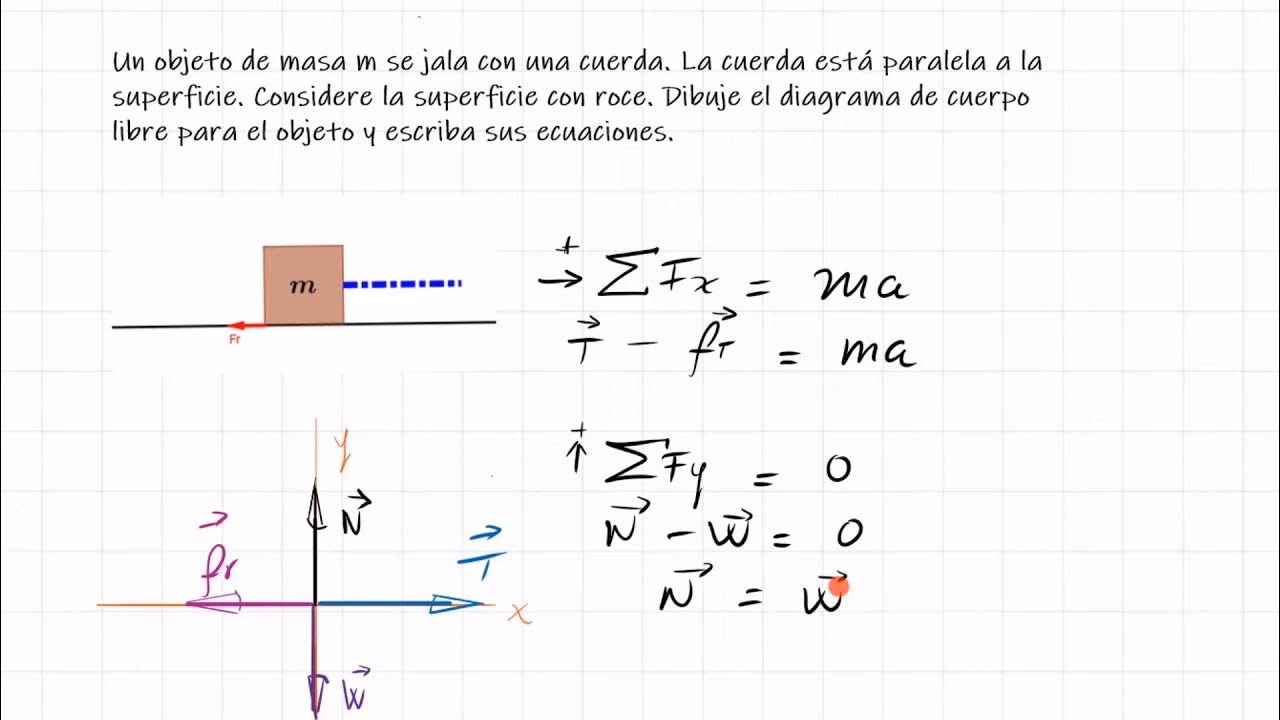 Un objeto de masa m se jala con una cuerda. La cuerda está paralela a la
superficie. Considere la superficie con roce. Dibuje el diagrama de cuerpo
libre para el objeto y escriba sus ecuaciones.
m
Fr
+
→ ∑Fx = ma
T⃗ − f⃗r = ma
+
↑ ∑Fy = 0
N⃗ − W⃗ = 0
N⃗ = W⃗
y
N⃗
f⃗r
T⃗
x
W⃗